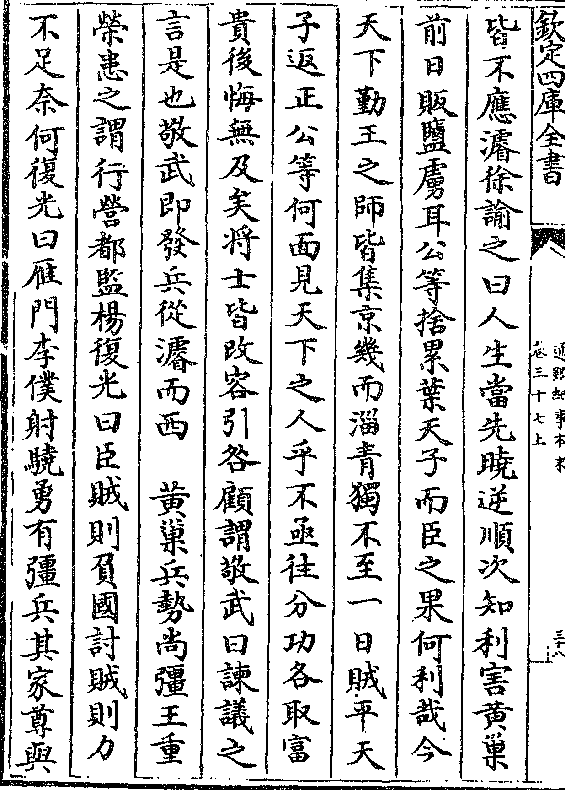 欽定四庫全書
通鑑紀事本末
卷三十七上
三十八
皆不應濬徐諭之曰人生當先曉逆順次知利害黃巢
前日販鹽虜耳公等捨累葉天子而臣之果何利哉今
天下勤王之師皆集京幾而淄青獨不至一日賊平天
子返正公等何面見天下之人乎不亟往分功各取富
貴後悔無及矣將士皆改容引咎顧謂敬武曰諫議之
言是也敬武即發兵從濬而西　黃巢兵勢尚彊王重
榮患之謂行營都監楊復光曰臣賊則負國討賊則力
不足奈何復光曰雁門李僕射驍勇有彊兵其家尊與